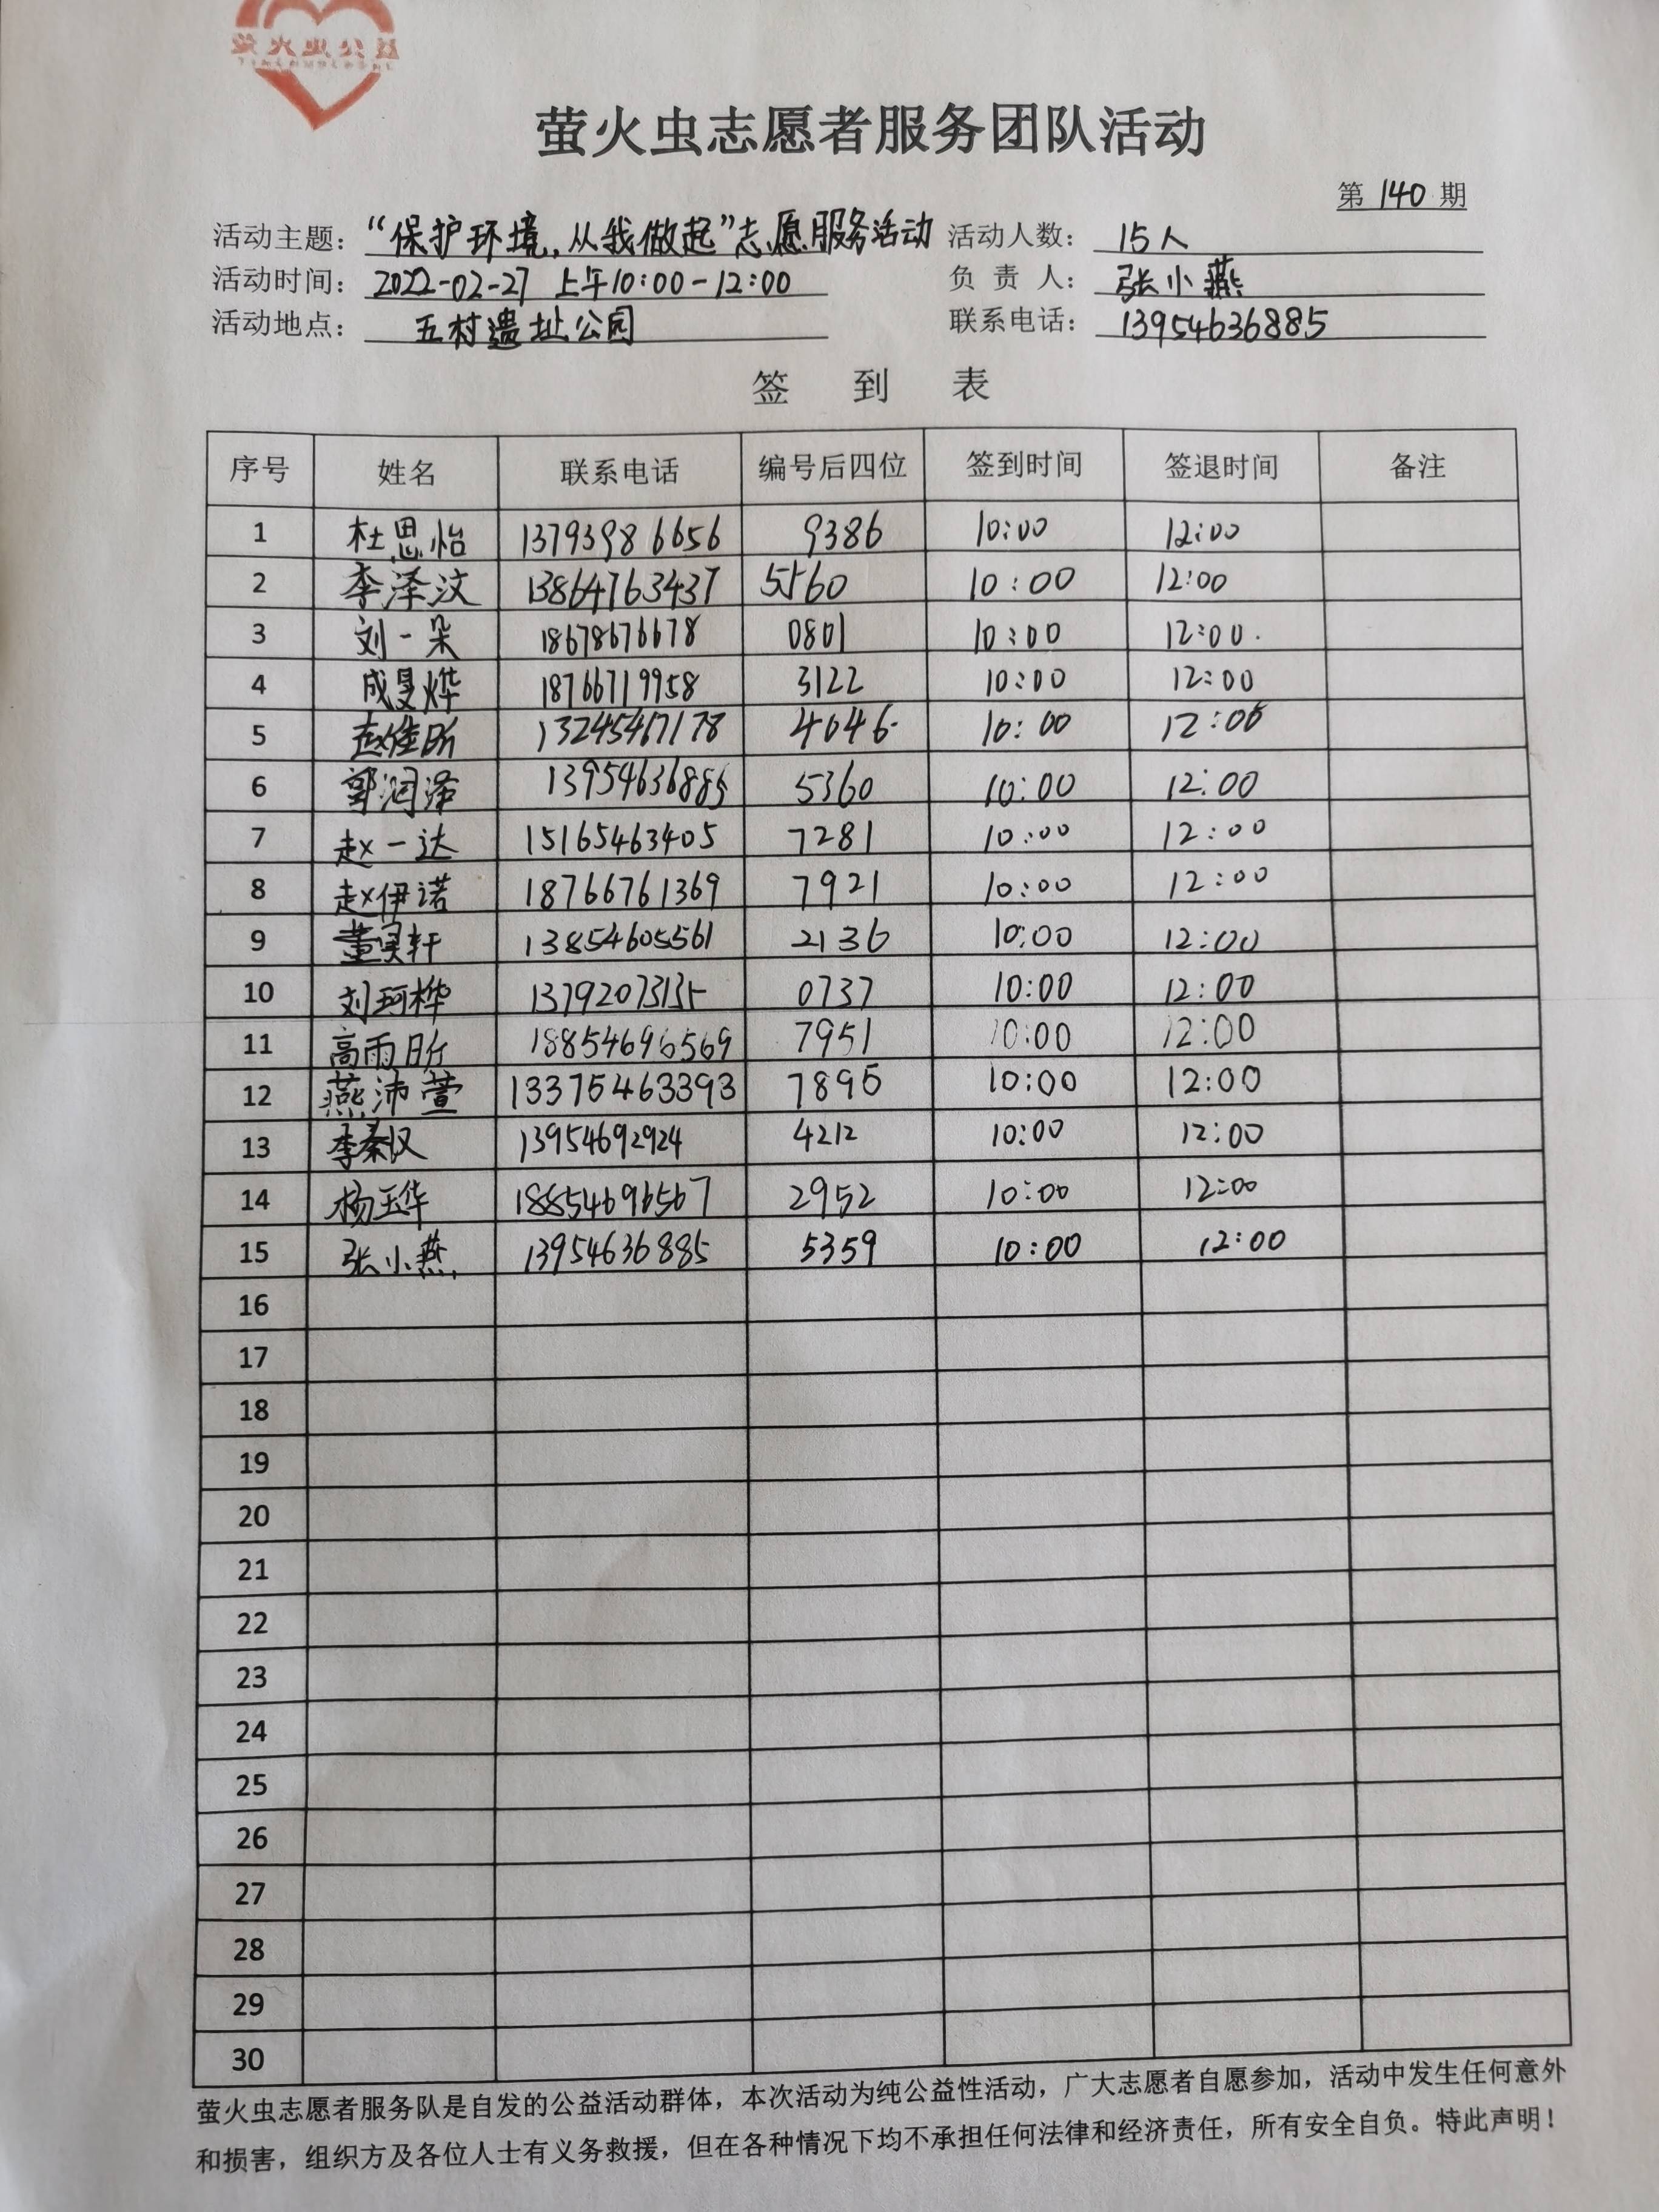 萤火虫公益
萤火虫志愿者服务团队活动
第 140 期
活动主题：“保护环境，从我做起”志愿服务活动 活动人数： 15人
活动时间： 2022-02-27 上午10:00-12:00 负 责 人： 张小燕
活动地点： 五村遗址公园 联系电话： 13954636885
签 到 表
序号 姓名 联系电话 编号后四位 签到时间 签退时间 备注
1 杜思怡 13793986656 9386 10:00 12:00
2 李泽汶 13864763437 5560 10:00 12:00
3 刘一朵 18678676678 0801 10:00 12:00.
4 成旻烨 18766719958 3122 10:00 12:00
5 13245467178 4046 10:00 12:00
6 郭润泽 13954636885 5360 10:00 12:00
7 赵一达 15165463405 7281 10:00 12:00
8 赵伊诺 18766761369 7921 10:00 12:00
9 13854605561 2136 10:00 12:00
10 刘珂桦 13792073135 0737 10:00 12:00
11 高雨昕 18854696569 7951 10:00 12:00
12 燕沛萱 13375463393 7895 10:00 12:00
13 李秦汉 13954692924 4212 10:00 12:00
14 杨玉华 18854696567 2952 10:00 12:00
15 张小燕 13954636885 5359 10:00 12:00
16
17
18
19
20
21
22
23
24
25
26
27
28
29
30
萤火虫志愿者服务队是自发的公益活动群体，本次活动为纯公益性活动，广大志愿者自愿参加，活动中发生任何意外
和损害，组织方及各位人士有义务救援，但在各种情况下均不承担任何法律和经济责任，所有安全自负。特此声明！